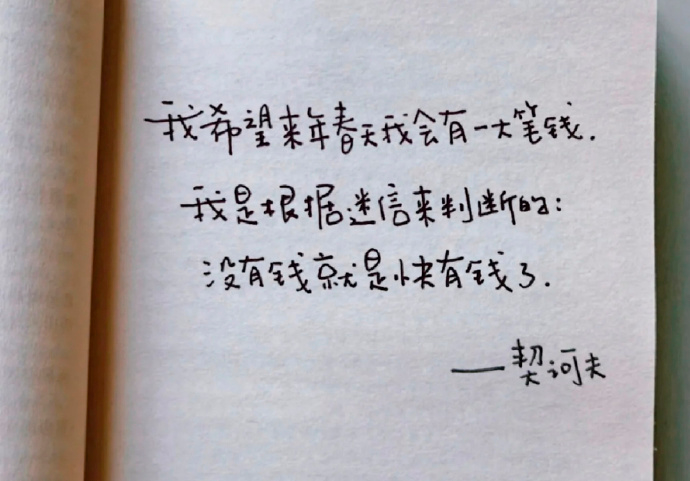 我希望来年春天我会有一大笔钱.
我是根据迷信来判断的:
没有钱就是快有钱了.
——契诃夫